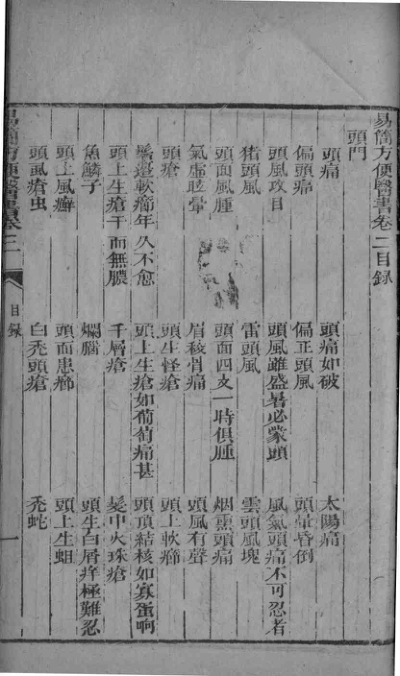 易簡方便醫書卷二目錄
頭門
頭痛　頭痛如破　太陽痛
偏頭痛　偏正頭風　頭暈昏倒
頭風攻目　頭風雖盛暑必蒙頭　風氣頭痛不可忍者
猪頭風　雷頭風　雲頭風塊
頭面風腫　頭面四支一時俱腫　烟熏頭痛
氣虛眩暈　眉稜骨痛　頭風有聲
頭瘡　頭生怪瘡　頭上軟癤
鬢邊軟癤年久不愈　頭上生瘡如葡萄痛甚　頭頂結核如寡蛋响
頭上生瘡干而無膿　千層瘡　髮中火珠瘡
魚鱗子　爛腦　頭生白屑痒極難忍
頭上風癬　頭面患癤　頭上生蛆
頭虱瘡虫　白禿頭瘡　禿蛇
目錄
一